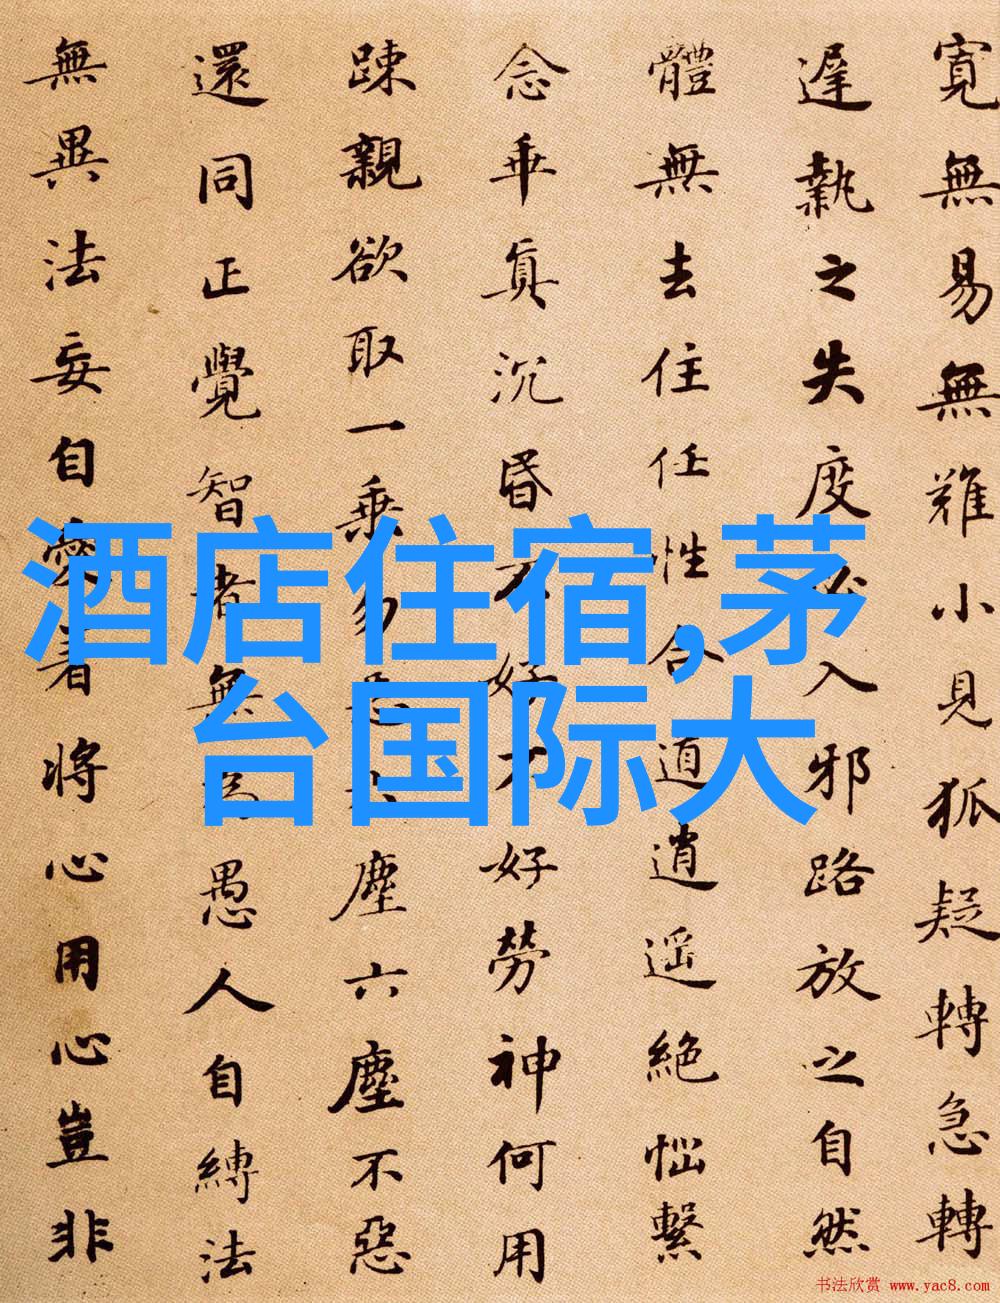 酒店住宿,茅
台国际大
寛無易無難小見狐疑轉急轉
遲執之失度必入邪路放之自然
體無去住任性合道逍遥絶惱繫
念乖真沉昏不好不好勞神何用
踈親欲取一乗勿惡六塵六塵不惡
還同正覺智者無為愚人自縛法
無異法妄自愛著將心用心豈非
书法欣赏 www.yac8.com